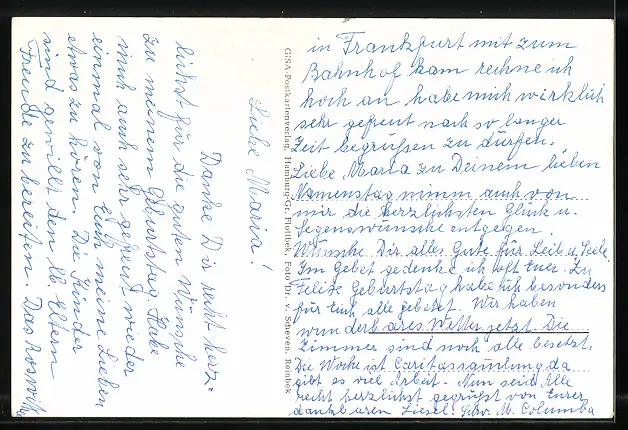 Liebe Maria!
Danke Dir recht herz-
lichst für die guten Wünsche
zu meinem Geburtstag. Habe
mich auch sehr gefreut wieder
einmal von Euch meine Lieben
etwas zu hören. Die Kinder
sind gewillt den lb. Eltern
Freude zu bereiten. Das
GISA-Postkartenverlag, Hamburg-Gr. Flottbek, Foto Dr. v. Scheven, Reinbek
in Frankfurt mit zum
Bahnhof kam rechne ich
hoch an, habe mich wirklich
sehr gefreut nach so langer
Zeit begrüßen zu dürfen.
Liebe Maria zu Deinem lieben
Namenstag nimm auch von
mir die herzlichsten Glück u.
Segenswünsche entgegen.
Wünsche Dir alles Gute für Leib u. Seele.
Im Gebet gedenke ich oft Euer. Zu
Geburtstag habe ich besonders
für Euch alle gebetet. Wir haben
wunderbares Wetter jetzt. Die
Zimmer sind noch alle besetzt.
Die Woche ist Caritassammlung da
gibt es viel Arbeit. Nun seid Alle
recht herzlichst gegrüßt von Eurer
dankbaren Liesel. Schw. M. Columba